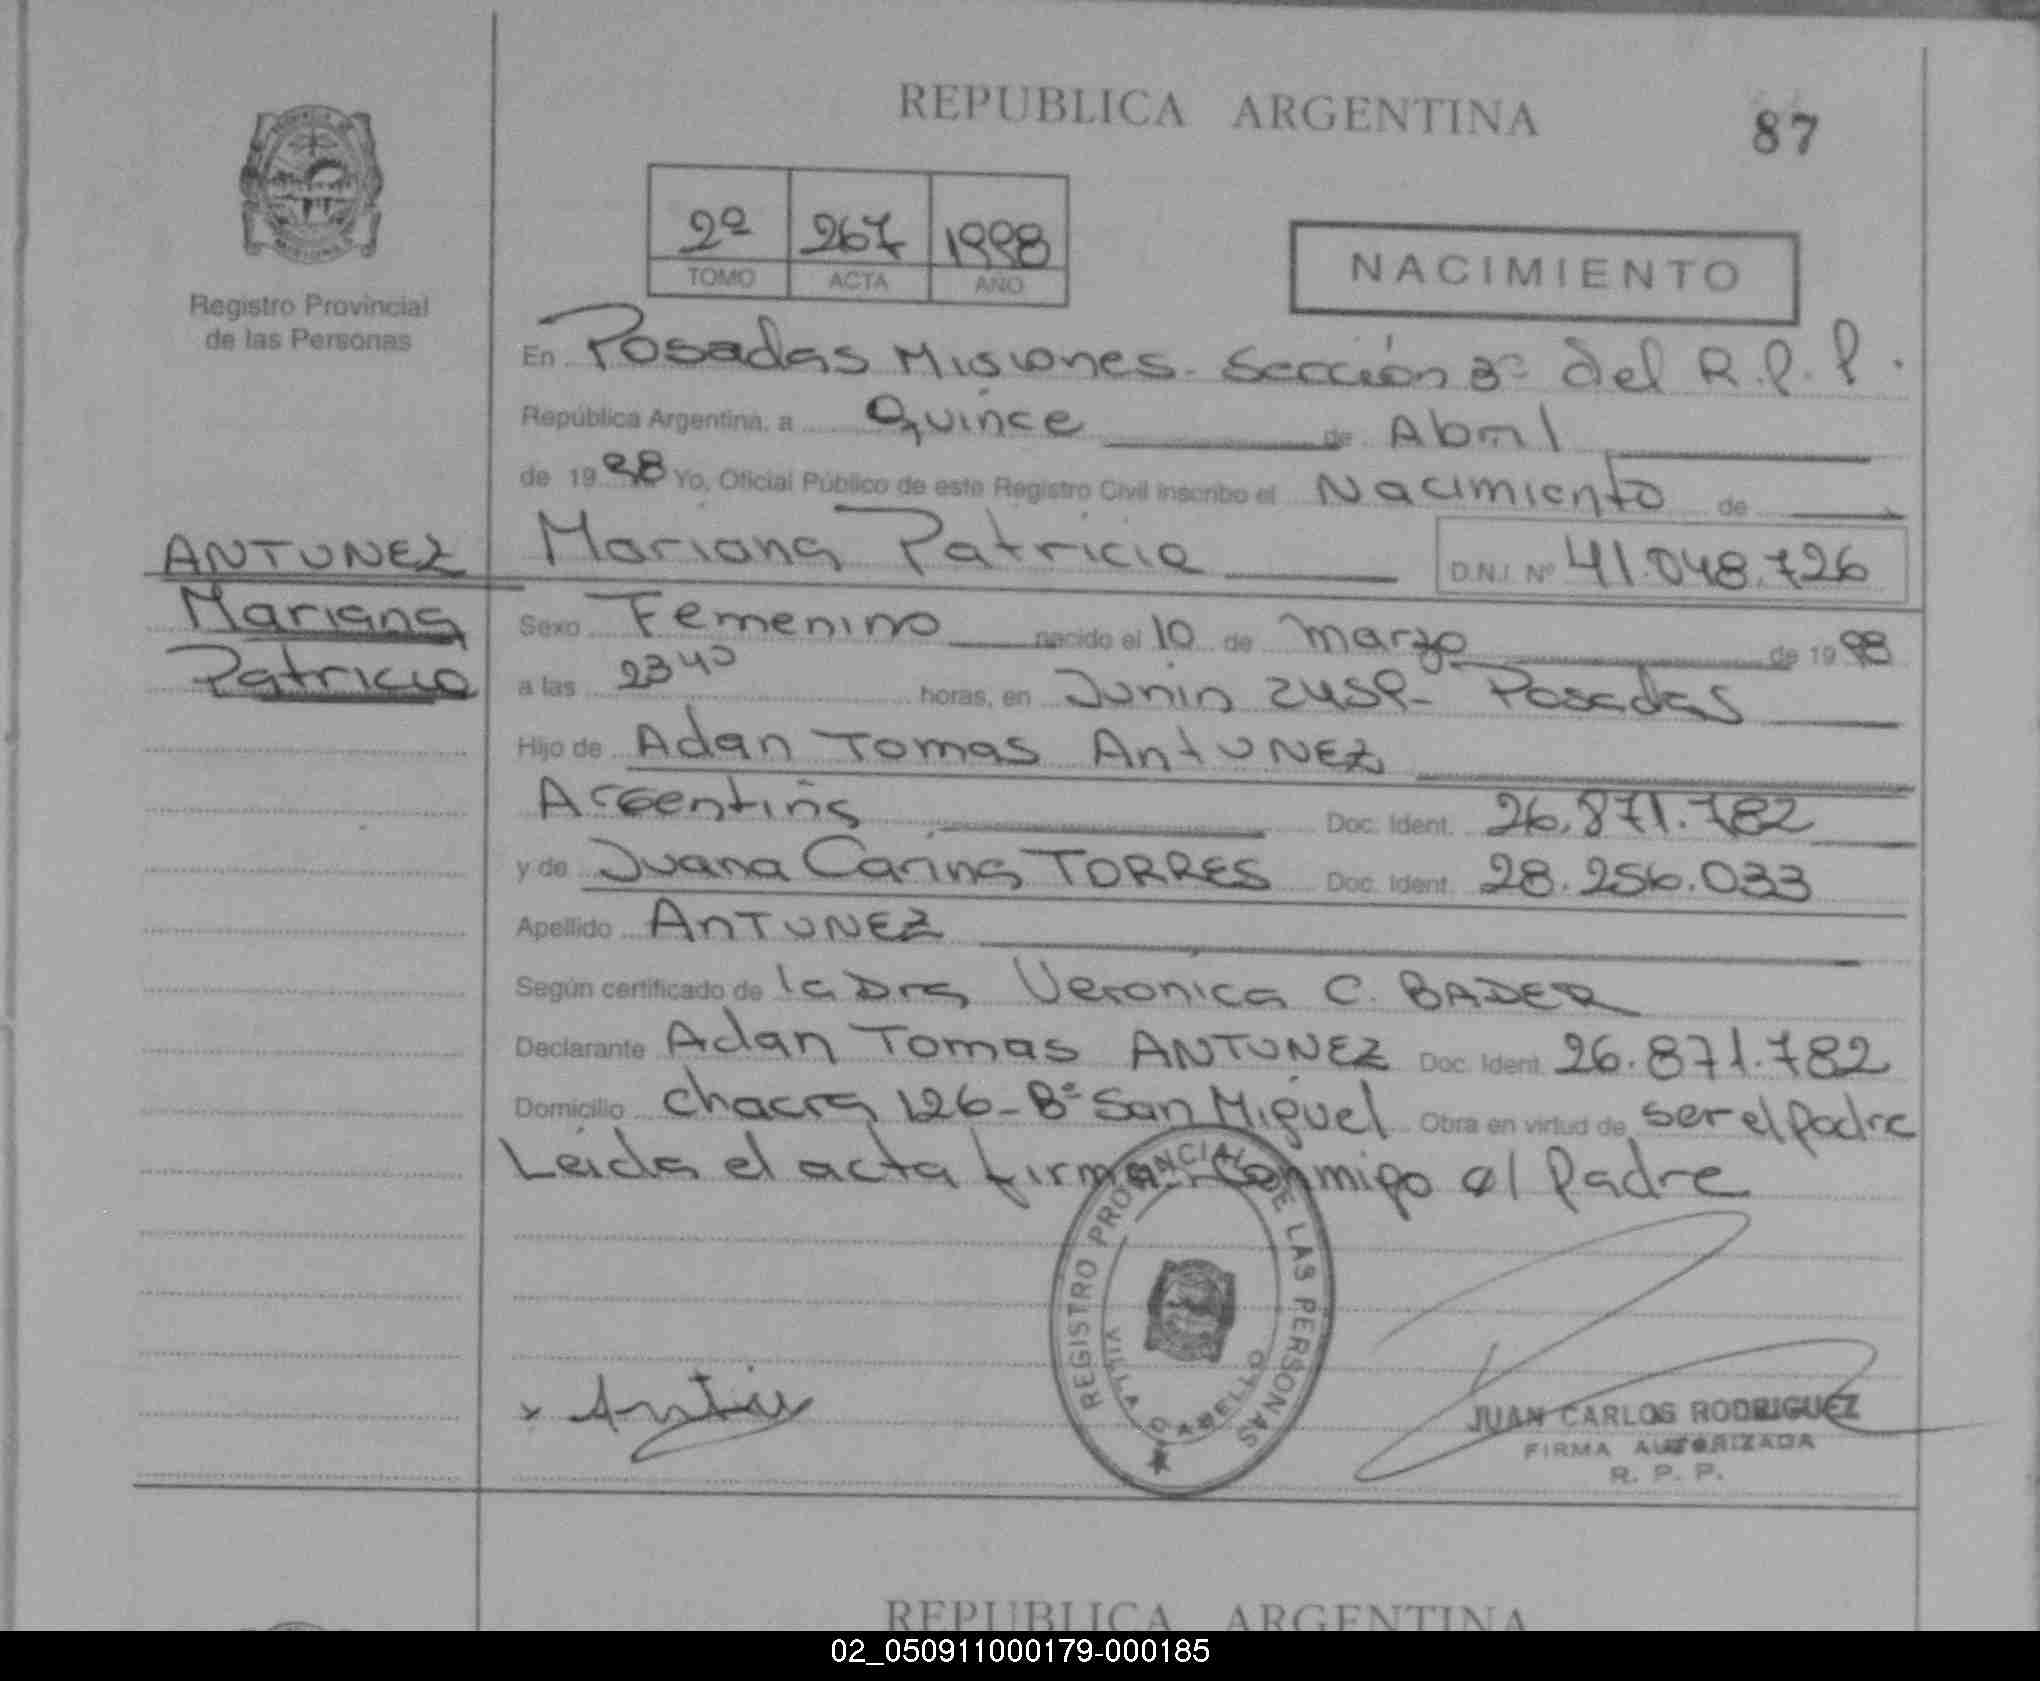 REPUBLICA ARGENTINA
87
2º 267 1998
TOMO ACTA AÑO
NACIMIENTO
Registro Provincial
de las Personas
En Posadas Misiones. Sección 3º del R.P.P.
República Argentina, a Quince de Abril
de 1998 Yo, Oficial Público de este Registro Civil inscribo el Nacimiento de
ANTUNEZ
Mariana
Patricia
Mariana Patricia D.N.I. Nº 41.048.726
Sexo Femenino nacido el 10 de marzo de 1998
a las 2340 horas, en Junin Posadas
Hijo de Adan Tomas AntUNEZ
Argentina Doc. Ident. 26.871.782
y de Juana Carina TORRES Doc. Ident. 28.256.033
Apellido AnTUNEZ
Según certificado de la Dra Veronica C. BADER
Declarante Adan Tomas ANTUNEZ Doc. Ident. 26.871.782
Domicilio chacra 126-Bº San Miguel Obra en virtud de ser el padre
Leida el acta firma conmigo el Padre
REGISTRO PROVINCIAL DE LAS PERSONAS
VILLA CABELLO
JUAN CARLOS RODRIGUEZ
FIRMA AUTORIZADA
R. P. P.
REPUBLICA ARGENTINA
02_050911000179-000185